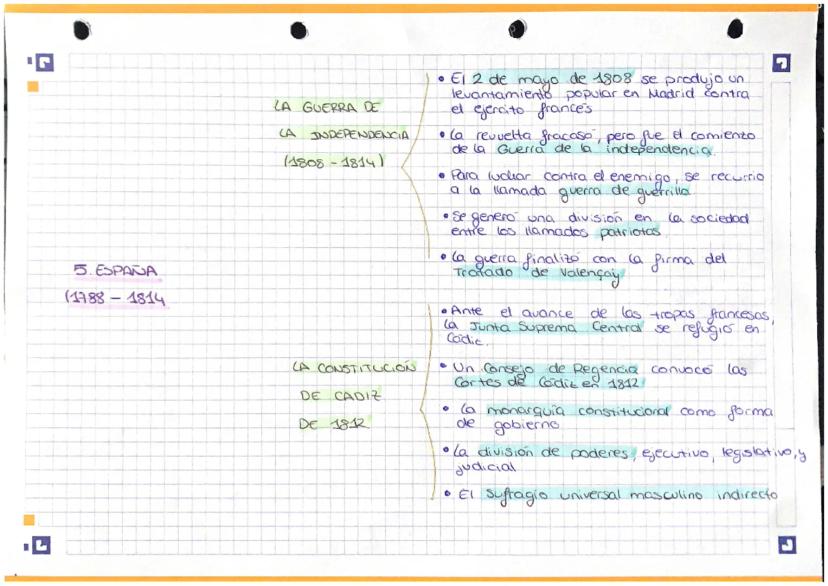 • El 2 de mayo de 1808 se produjo un
levantamiento popular en Madrid contra
el ejercito francés
LA GUERRA DE
LA INDEPENDENCIA
(1808 - 1814)
• La revuelta fracasó, pero fue el comienzo
de la Guerra de la independencia.
• Para luchar contra el enemigo, se recurrio
a la llamada guerra de guerrilla
• Se generó una división en la sociedad
entre los llamados patriotas
• La guerra finalizó con la firma del
Tratado de Valençay
5. ESPAÑA
(1788 - 1814
• Ante el avance de las tropas francesas,
la Junta Suprema Central se refugió en
Cádiz.
LA CONSTITUCIÓN
DE CADIZ
DE 1812
• Un Consejo de Regencia convocó las
Cortes de Cádiz en 1812
• La monarquía constitucional como forma
de gobierno
• La división de poderes, ejecutivo, legislativo, y
judicial
• El Sufragio universal masculino indirecto